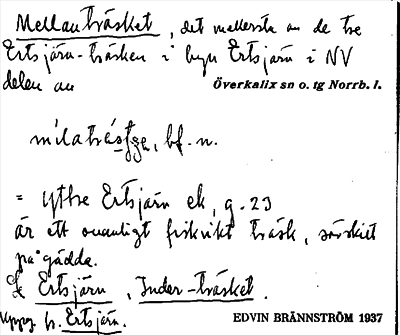 Mellanträsket, det mellersta av de tre
Ertsjärv-träsken i byn Ertsjärv i NV
delen av Överkalix sn o. tg Norrb. l.
bf. n.
= Yttre Ertsjärv ek, g. 23
är ett ovanligt fiskrikt träsk, särskilt
på gädda.
Ertsjärv, Inder-träsket.
Uppg. b. Ertsjärv.
EDVIN BRÄNNSTRÖM 1937